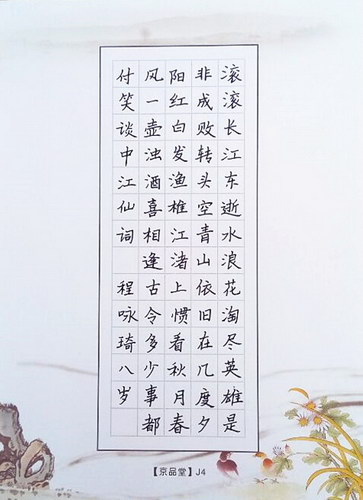 滚滚长江东逝水浪花淘尽英雄是
非成败转头空青山依旧在几度夕
阳红白发渔樵江渚上惯看秋月春
风一壶浊酒喜相逢古今多少事都
付笑谈中江仙词 程咏琦八岁
【京品堂】J4